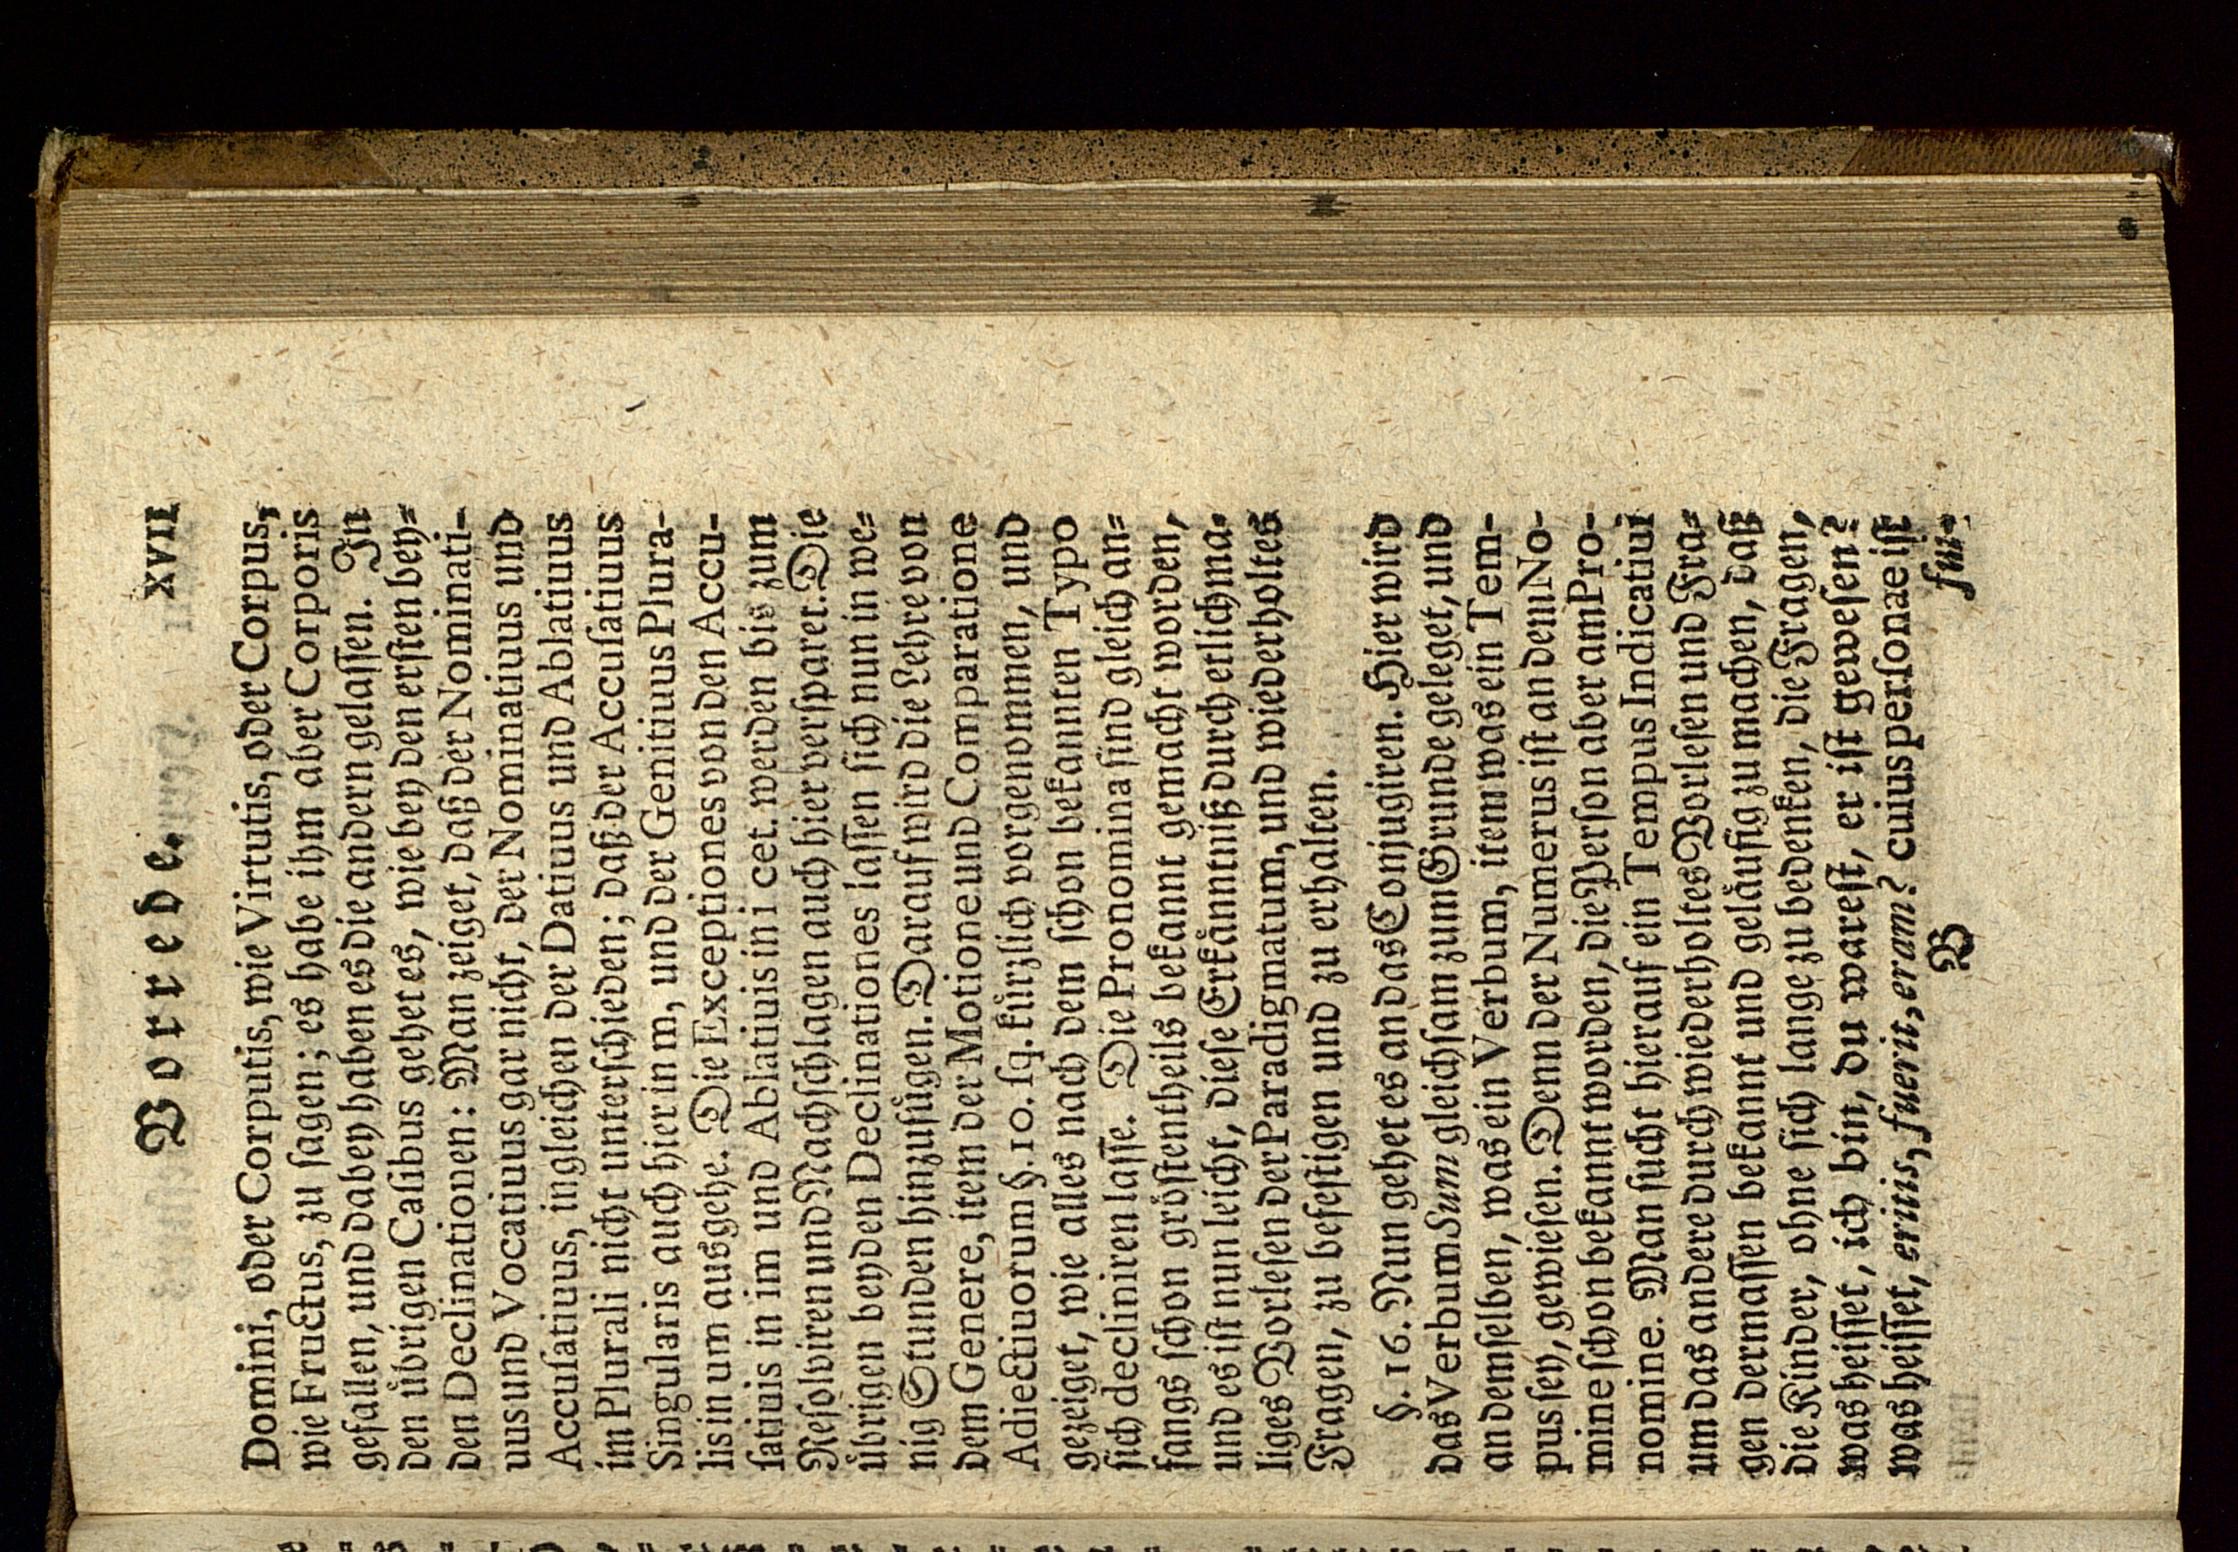 Vorrede. XVII
Domini, oder Corputis, wie Virtutis, oder Corpus,
wie Fructus, zu ſagen; es habe ihm aber Corporis
gefallen, und dabey haben es die andern gelaſſen. In
den uͤbrigen Caſibus gehet es, wie bey den erſten bey-
den Declinationen: Man zeiget, daß der Nominati-
uus und Vocatiuus gar nicht, der Nominatiuus und
Accuſatiuus, ingleichen der Datiuus und Ablatiuus
im Plurali nicht unterſchieden; daß der Accuſatiuus
Singularis auch hier in m, und der Genitiuus Plura-
lis in um ausgehe. Die Exceptiones von den Accu-
ſatiuis in im und Ablatiuis in i cet. werden bis zum
Reſolviren und Nachſchlagen auch hier verſparet. Die
uͤbrigen beyden Declinationes laſſen ſich nun in we-
nig Stunden hinzufuͤgen. Darauf wird die Lehre von
dem Genere, item der Motione und Comparatione
Adiectiuorum §. 10. ſq. kuͤrzlich vorgenommen, und
gezeiget, wie alles nach dem ſchon bekannten Typo
ſich decliniren laſſe. Die Pronomina ſind gleich an-
fangs ſchon groͤſtentheils bekannt gemacht worden,
und es iſt nun leicht, dieſe Erkaͤnntniß durch etlichma-
liges Vorleſen der Paradigmatum, und wiederholtes
Fragen, zu befeſtigen und zu erhalten.
§. 16. Nun gehet es an das Conjugiren. Hier wird
das Verbum Sum gleichſam zum Grunde geleget, und
an demſelben, was ein Verbum, item was ein Tem-
pus ſey, gewieſen. Denn der Numerus iſt an dem No-
mine ſchon bekannt worden, die Perſon aber am Pro-
nomine. Man ſucht hierauf ein Tempus Indicatiui
um das andere durch wiederholtes Vorleſen und Fra-
gen dermaſſen bekannt und gelaͤufig zu machen, daß
die Kinder, ohne ſich lange zu bedenken, die Fragen,
was heiſſet, ich bin, du wareſt, er iſt geweſen?
was heiſſet, eritis, fuerit, eram? cuius perſonae iſt
B fui-